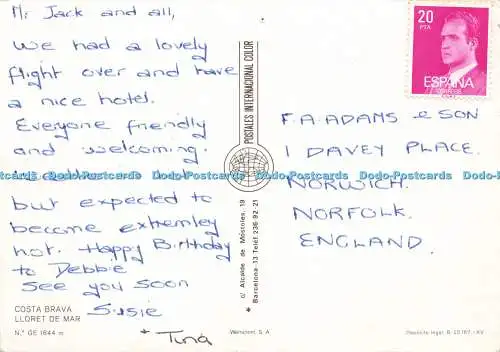 Hi Jack and all,
We had a lovely
flight over and have
a nice hotel.
Everyone friendly
and welcoming.
Weather hot
but expected to
become extremley
hot. Happy Birthday
to Debbie
see you soon
Susie
* Tina
COSTA BRAVA
LLORET DE MAR
N.º GE 1644 m
POSTALES INTERNACIONAL COLOR
c/ Alcalde de Móstoles, 19
Barcelona-13 Teléf 236-92-21
*
Wamaleni, S. A.
Depósito legal B. 20167 - XV
20
PTA
ESPAÑA
CORREOS
F.A. ADAMS & SON
1 DAVEY PLACE.
NORWICH.
NORFOLK.
ENGLAND.
Dodo-Postcards Dodo-Postcards Dodo-Postcards Dodo-Postcards